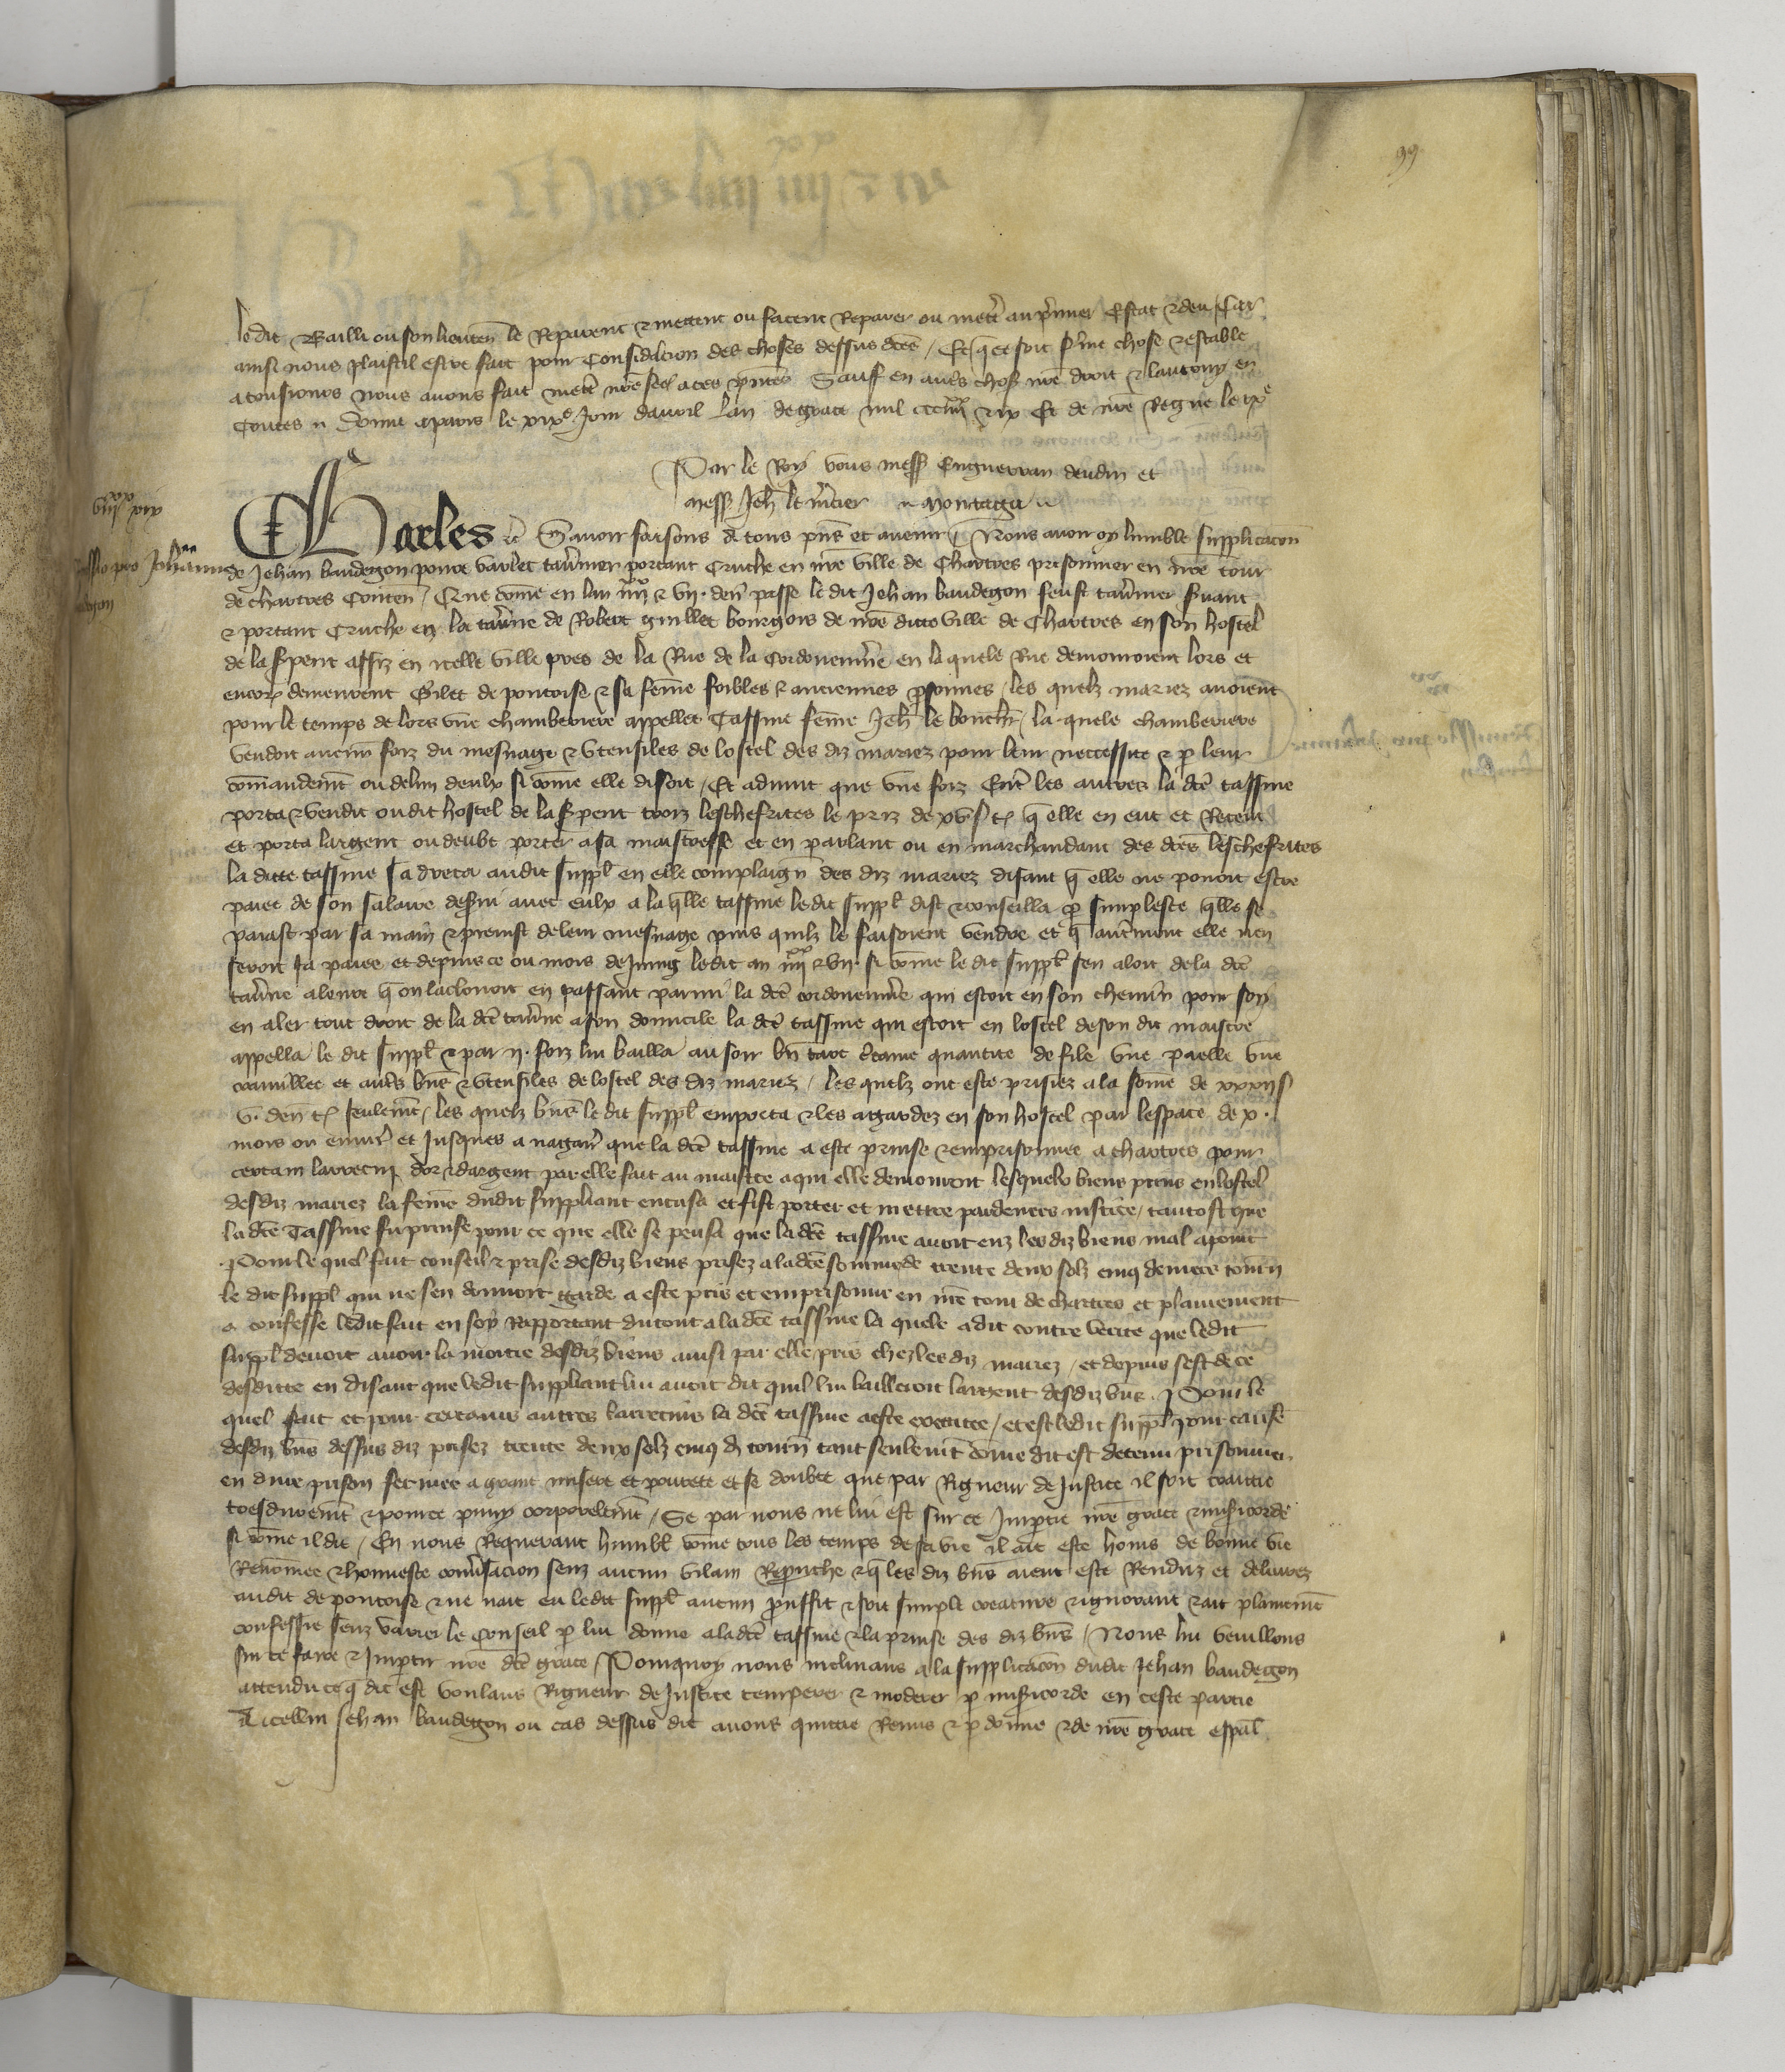 99
ledit Bailli ou son lieuten le Reparent & mettent ou facent Reparer ou mettre au premier Estat & deu Car
ainsi nous plaist il estre fait pour Consideracion des choses dessus dces / Et que ce soit ferme chose & estable
a tousiours nous avons fait mettre nre seel a ces pntes Sauf en autres choses nre droit & lautruy en
toutes Donne a paris le xixe Jour davril lan de grace mil ccc iiiixx & ix Et de nre Regne le ixe
Par le Roy vous mess Enguerran deudin et
mess Jeh le mercier Montagu
viiixx xix
Charles etc Savoir faisons A tous pns et avenir / Nous avoir oy lumble supplicacon
Remissio pro Johanne
de Jehan baudegon povre varlet tavnier portant Cruche en nre ville de Chartres prisonnier en nre tour
baudegon
de chartres Conten / Que come en lan iiiixx & vii. den passe ledit Jehan baudegon feust tavnier suant
& portant Cruche en la tavne de Robert guillet bourgois de nre ditte ville de Chartres en son hostel
de la Spent assiz en icelle ville pres de la Rue de la Cordouennie en laquele Rue demouroient lors et
encores demeurent Gilet de pontoise & sa feme foibles & anciennes psonnes / les quelz mariez avoient
pour le temps de lors une chamberiere appellee Tassine feme Jeh le bouch / la quele chamberiere
vendoit aucune foiz du mesnage & Utensiles de lostel des diz mariez pour leur neccessite & p leur
comandemt ou de lun deulx si come elle disoit / Et advint que une foiz Entre les autres la dce tassine
porta & vendit oudit hostel de la Spent trois leschefrites le priz de xv s t q elle en eut et Receut
et porta largent ou deubt porter a sa maistresse et en parlant ou en marchandant des dces leschefrites
la ditte tassine sa dreca audit suppl en elle complaign des diz mariez disant q elle ne pouoit estre
paiee de son salaire deservi avec eulx a la qlle tassine ledit suppl dist & conseilla p simplesce qlle se
paiast par sa main & preinst de leur mesnage puis quilz le faisoient vendre et q autrement elle nen
seroit Ja paiee et depuis ce ou mois de Juing ledit an iiiixx & vii. si come le dit suppl sen aloit de la dce
tavne a leure q on la clouoit en passant parmi la dce cordouennie qui estoit en son chemin pour soy
en aler tout droit de la dce tavne a son domicile la dce tassine qui estoit en lostel de son dit maistre
appella le dit suppl & par ii. foiz lui bailla au soir bn tart ctaine quantite de file une paelle une
et autres bns & utensiles de lostel des diz mariez / les quelz ont este prisiez a la some de xxxii s
v. den t seulemt / les quelz bns ledit suppl emporta & les a gardez en son hostel par lespace de x.
mois ou environ et Jusques a nagaires que la dce tassine a este prinse & emprisonnee a chartres pour
certain larrecin dor & dargent par elle fait au maistre a qui elle demouroit lesquelx biens prins en lostel
desdiz mariez la feme dudit suppliant encusa et fist porter et mettre pardevers justice / tantost que
la dce Tassine fu prinse pour ce que elle se pensa que la dce tassine avoit euz lesdiz biens mal apoint
Pour le quel fait conseil & prise desdiz biens prisez a la dce somme de trente deux solz cinq deniers tourn
le dit suppl qui ne sen donnoit garde a este pris et emprisonne en nre tour de chartres et plainement
a confesse ledit fait en soy Rapportant du tout a la dce tassine la quele a dit contre verite que ledit
suppl devoit avoir la moitie desdiz biens ainsi par elle pris chez lesdiz mariez / et depuis sest de ce
desditte en disant que ledit suppliant lui avoit dit quil lui bailleroit largent desdiz bns. Pour le
quel fait et pour certains autres larrecins la dce tassine a este executee / et est ledit suppl pour cause
desdiz bns dessus diz prisez trente deux solz cinq d tourn tant seulemt come dit est detenu prisonnier
en dure prison fermee a grant misere et povrete et se doubte que par Rigueur de Justice il soit traittie
tresdurement & pourroit puny corporelemt / Se par nous ne lui est sur ce Impartie nre grace & misericorde
si come il dit / En nous Requerant humbl come tous les temps de sa vie il ait este homs de bonne vie
Renomee & honneste conversacion senz aucun vilain Reprouche & q les diz bns aient este Renduz et delivrez
audit de pontoise & ne nait eu ledit suppl aucun prouffit & soit simple creature & ignorant & ait plainemt
confesse senz varier le Conseil p lui donne a la dce tassine & la prinse des diz bns / Nous lui vueillons
sur ce faire & Impartir nre dce grace / Pourquoy nous inclinans a la supplicacon dudit Jehan baudegon
attendu ce q dit est voulans Rigueur de Justice temperer & moderer p misericorde en ceste partie
A icellui Jehan baudegon ou cas dessus dit avons quittie Remis & pdonne & de nre grace espal